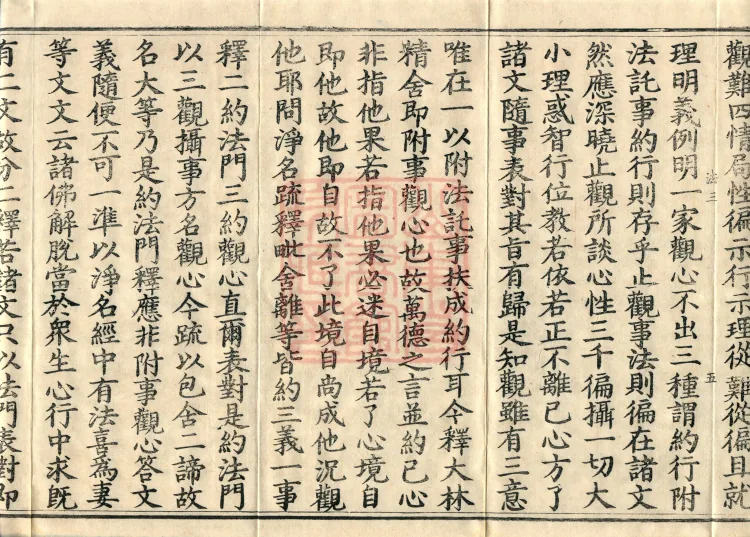 觀難四情局性徧示行示理從難從徧且就
理明義例明一家觀心不出三種謂約行附
法託事約行則存乎止觀事法則徧在諸文
然應深曉止觀所談心性三千徧攝一切大
小理惑智行位教若依若正不離己心方了
諸文隨事表對其旨有歸是知觀雖有三意
唯在一以附法託事扶成約行耳今釋大林
精舍即附事觀心也故萬德之言並約己心
非指他果若指他果必迷自境若了心境自
即他故他即自故不了此境自尚成他況觀
他耶問淨名疏釋毗舍離等皆約三義一事
釋二約法門三約觀心直爾表對是約法門
以三觀攝事方名觀心今疏以包舍二諦故
名大等乃是約法門釋應非附事觀心答文
義隨便不可一準以淨名經中有法喜為妻
等文文云諸佛解脫當於衆生心行中求既
有二文故分二釋若諸文只以法門表對即
法三
五